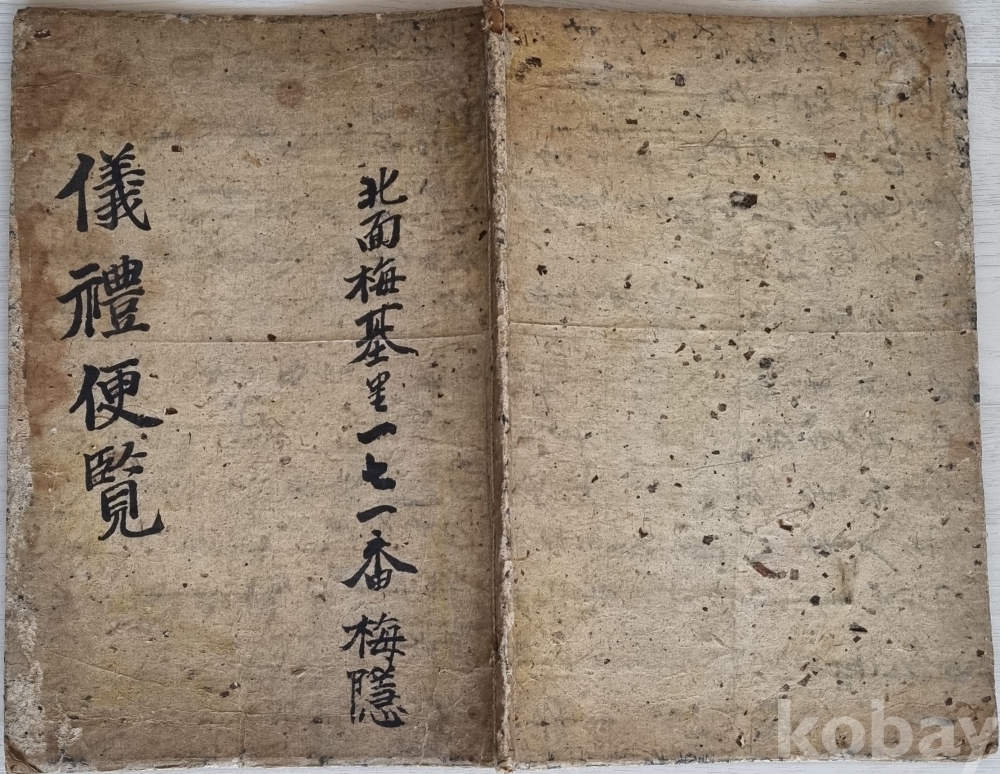 北面梅基里一七一番 梅隱
儀禮便覽
kobay